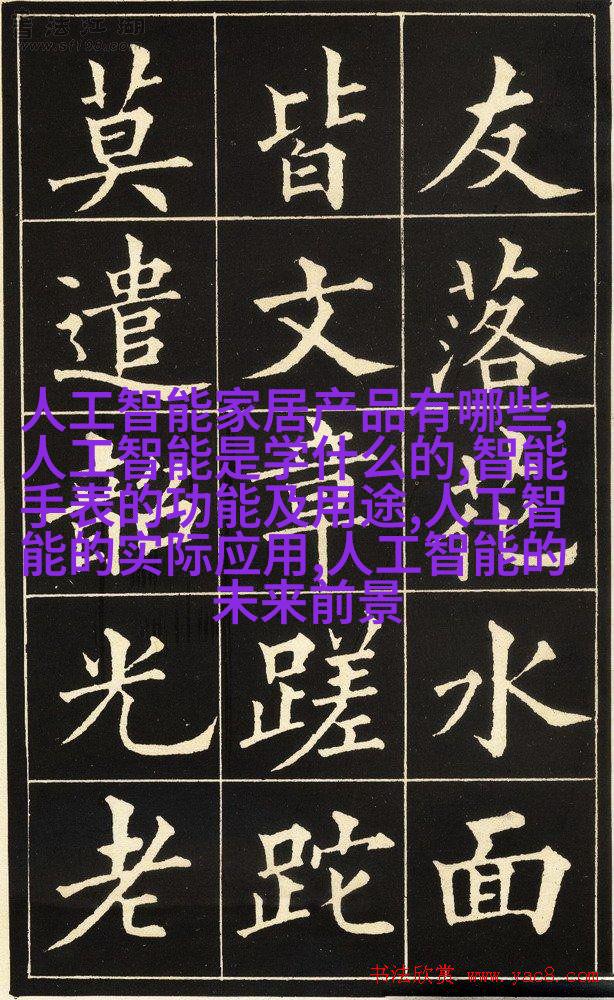 友落花水面
皆文章蹉跎
莫遣韶光老
人工智能家居产品有哪些,
人工智能是学什么的,智能
手表的功能及用途,人工智
能的实际应用,人工智能的
未来前景
书法欣赏 www.yac8.com